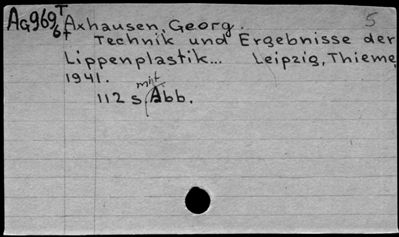 AG969 T Axhausen, Georg. 5
6t Technik und Ergebnisse der
Lippenplastik... Leipzig, Thieme,
1941.
112 s. mit Abb.